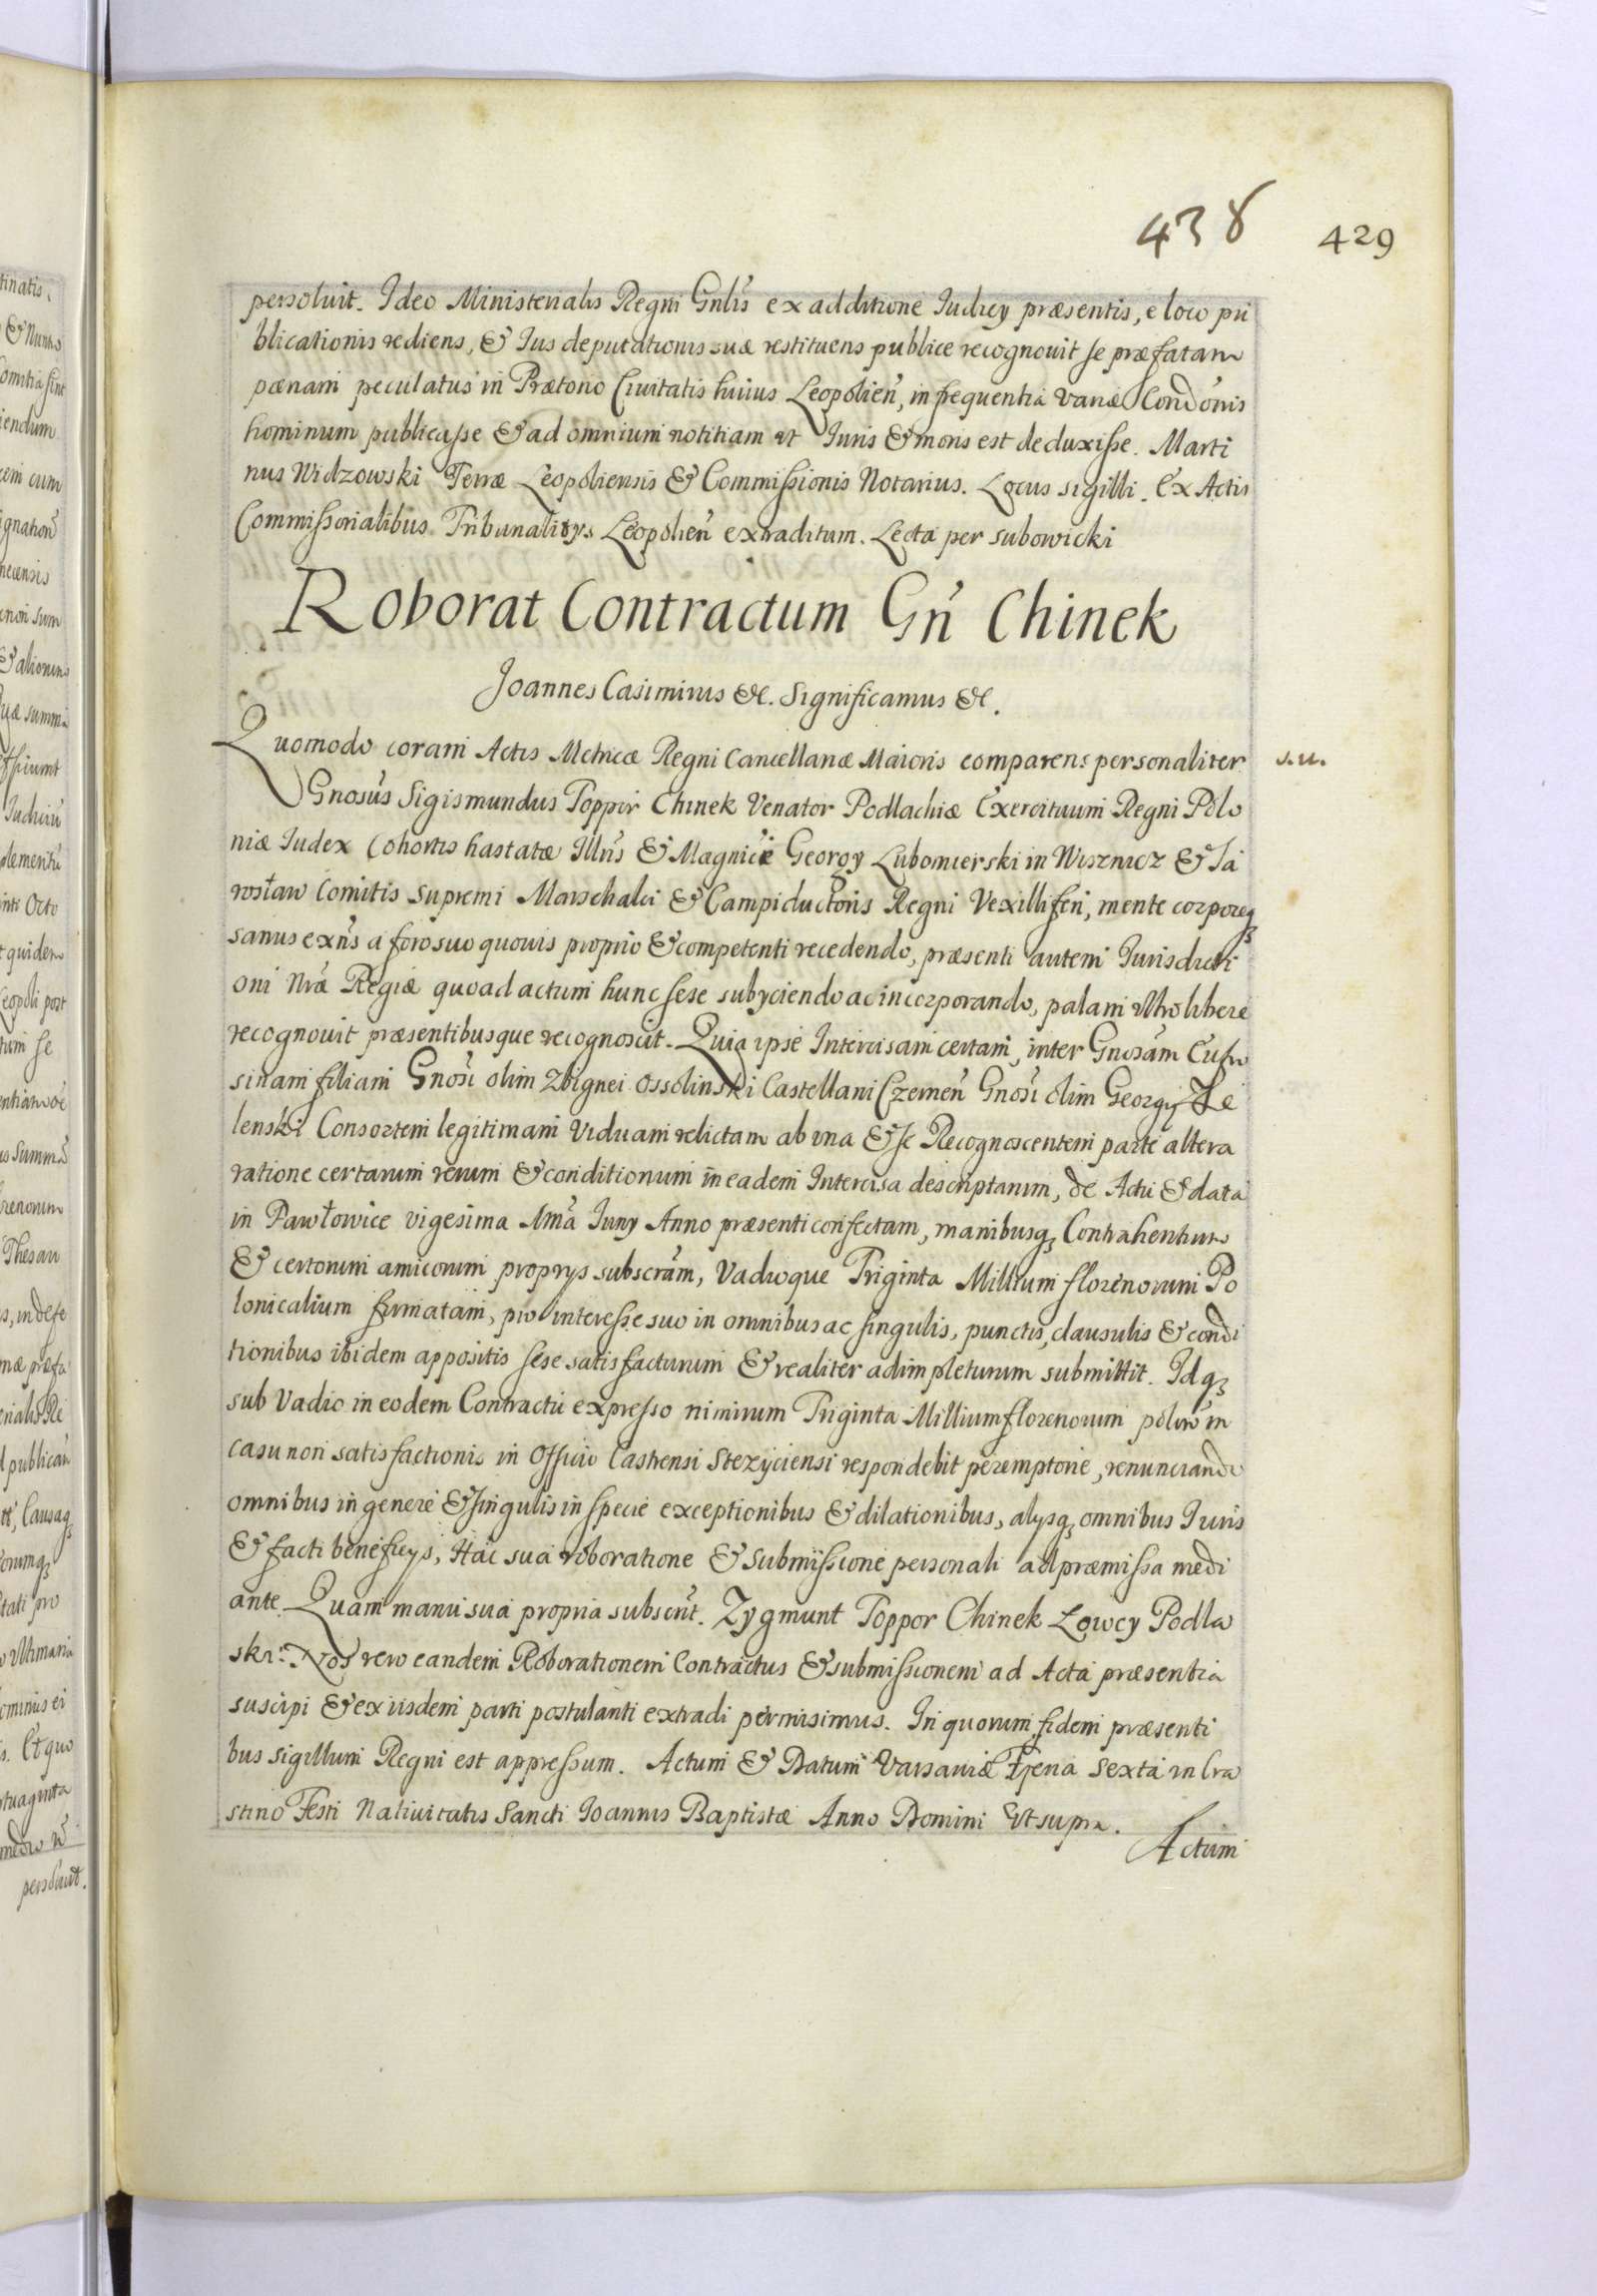 438 429
persoluit. Ideo Ministerialis Regni Gnlis ex additione Iudicy præsentis, e loco pu
blicationis rediens, & Ius deputationis suæ restituens publice recognouit se præfatam
pænam peculatus in Prætorio Ciuitatis huius Leopolien, in frequentia variæ Condonis
hominum publicasse & ad omnium notitiam ut Iuris & moris est deduxisse. Marti
nus Widzowski Terræ Leopoliensis & Commissionis Notarius. Locus sigilli. Ex Actis
Commissorialibus Tribunalitys Leopolien extraditum. Lecta per subowicki
Roborat Contractum Gn Chinek
Joannes Casimirus &c. Significamus &c.
Quomodo coram Actis Metricæ Regni Cancellariæ Maioris comparens personaliter s.u.
Gnosus Sigismundus Toppor Chinek Venator Podlachiæ Exercituum Regni Polo
niæ Iudex Cohortis hastatæ Illris & Magnici Georgy Lubomierski in Wisznicz & Ja
rosław Comitis Supremi Marschalci & Campiductoris Regni Vexilliferi, mente corporeq
sanus exns a foro suo quouis proprio & competenti recedendo, præsenti autem Iurisdicti
oni Nræ Regiæ quoad actum hunc sese subyciendo ac incorporando, palam ultro libere
recognouit præsentibusque recognoscit. Quia ipse Intercisam certam, inter Gnosam Eufro
sinam filiam Gnosi olim Zbignei Ossolinski Castellani Czernen Gnosi olim Georgy Ze
lenski Consortem legitimam Viduam relictam ab una & se Recognoscentem parte altera
ratione certarum rerum & conditionum in eadem Intercisa descriptarum, de Actu & data
in Pawłowice vigesima Ima Juny Anno præsenti confectam, manibusq Contrahentium
& certorum amicorum proprys subscram, Vadioque Triginta Millium florenorum Po
lonicalium firmatam, pro interesse suo in omnibus ac singulis, punctis, clausulis & condi
tionibus ibidem appositis sese satisfacturum & realiter adimpleturum submittit. Idq
sub Vadio in eodem Contractu expresso nimirum Triginta Millium florenorum polium in
casu non satisfactionis in Officio Castrensi Stezyciensi respondebit peremptorie, renunciando
omnibus in genere & singulis in specie exceptionibus & dilationibus, alysq omnibus Iuris
& facti beneficys, Hac sua roboratione & submissione personali ad præmissa medi
ante. Quam manu sua propria subscrit. Zygmunt Toppor Chinek Lowcy Podla
ski. Nos vero eandem Roborationem Contractus & submissionem ad Acta præsentia
suscipi & ex iisdem parti postulanti extradi permisimus. In quorum fidem præsenti
bus sigillum Regni est appressum. Actum & Datum Varsaviæ Feria Sexta in Cra
stino Festi Natiuitatis Sancti Joannis Baptistæ Anno Domini Ut supra.
Actum